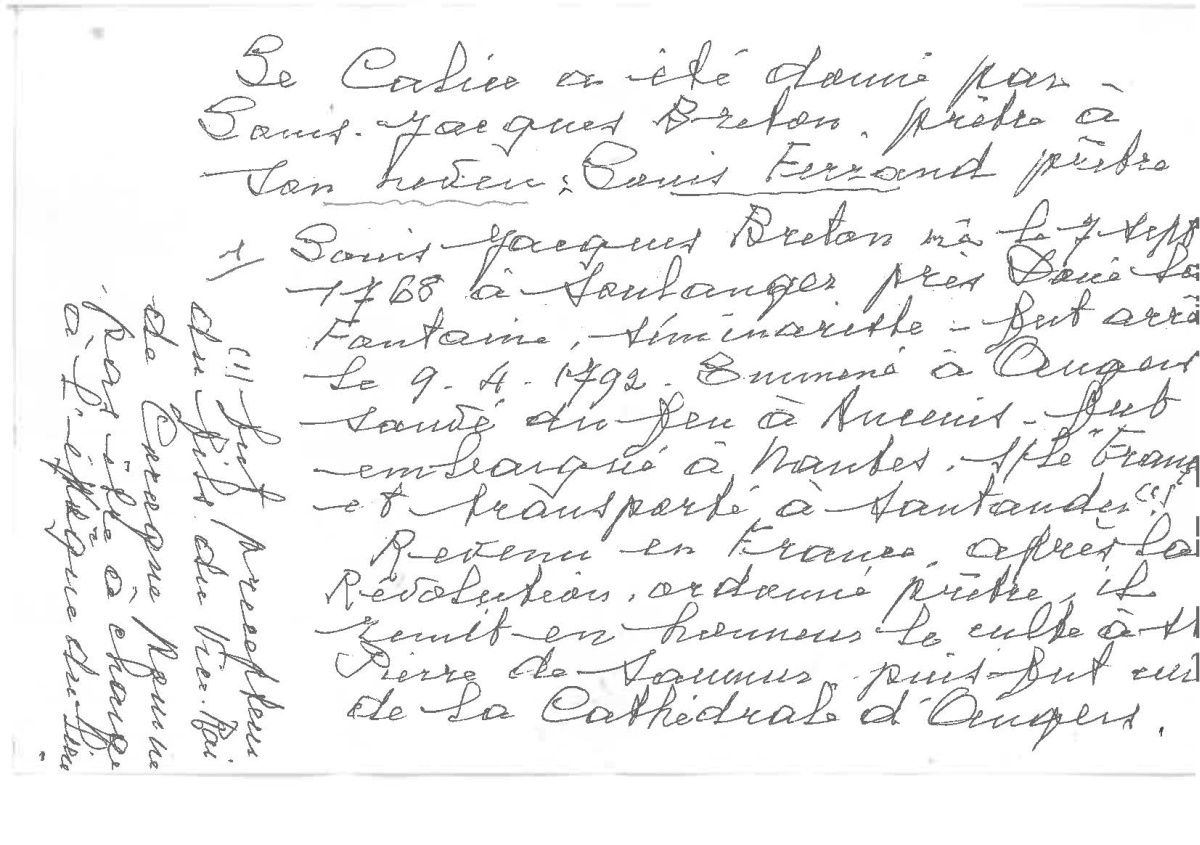 Le Calice a été donné par
Louis-Jacques Breton, prêtre à
son neveu : Louis Ferrand prêtre
1/ Louis Jacques Breton né le 7 sept
1768 à Soulanger près Doué la
Fontaine, séminariste - fut arrê
le 9. 4. 1792. Emmené à Angers
sauvé du feu à Ancenis - fut
embarqué à Nantes, s/ le "Franç
et transporté à Santander (1)
Revenu en France, après la
Révolution, ordonné prêtre, il
remit en honneur le culte à St
Pierre de Saumur, puis fut cur
de la Cathédrale d'Angers.
(1) fut précepteur
du fils du Vice-Roi
de Corogne pour ne
pas être à charge
à l'évêque du lieu